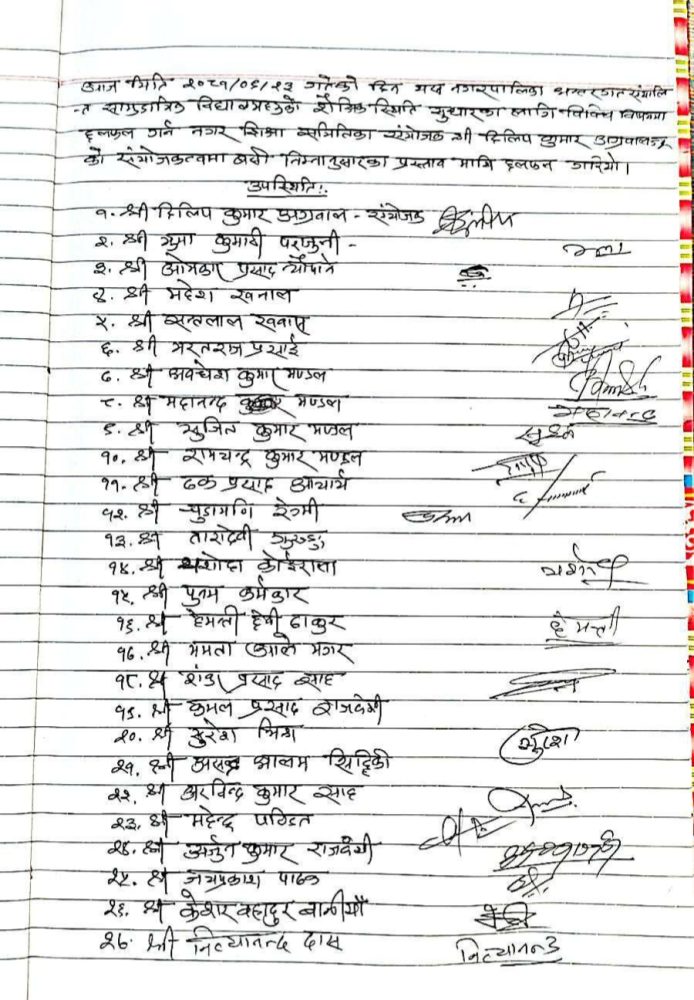 आज मिति २०८१/०६/२३ गतेको दिन नगरपालिका अन्तरगत संचालि
-त सामुदायिक विद्यालयहरुको शैक्षिक स्थिति सुधारका लागि विविध विषयमा
छलफल गर्न नगर शिक्षा समितिका संयोजक श्री दिलिप कुमार अग्रवालज्यू
को संयोजकत्वमा बसी निम्नानुसारका प्रस्ताव माथि छलफल गरियो।
उपस्थितिः
१. श्री दिलिप कुमार अग्रवाल - संयोजक
२. श्री कुमारी पराजुली -
३. श्री ओमकार प्रसाद न्यौपाने
४. श्री महेश खनाल
५. श्री सन्तलाल खवास
६. श्री भरतराज प्रसाई
७. श्री अवधेश कुमार मण्डल
८. श्री महानन्द कुमार मण्डल महानन्द
९. श्री सुजित कुमार मण्डल
१०. श्री रामचन्द्र कुमार मण्डल
११. श्री प्रसाद आचार्य
१२. श्री चुडामणि रेग्मी
१३. श्री तारादेवी
१४. श्री यशोदा कोईराला
१५. श्री पुनम कर्मकार
१६. श्री हेमन्ती देवी ठाकुर हेमन्ती
१७. श्री ममता आले मगर
१८. श्री प्रसाद साह
१९. श्री कमल प्रसाद राजवंशी
२०. श्री सुरेश मिश्र
२१. श्री आलम सिद्दिकी
२२. श्री अरविन्द्र कुमार साह
२३. श्री महेन्द्र पण्डित
२४. श्री अर्जुन कुमार राजवंशी
२५. श्री जयप्रकाश पाठक
२६. श्री केशर बहादुर बानीयाँ
२७. श्री नित्यानन्द दास नित्यानन्द